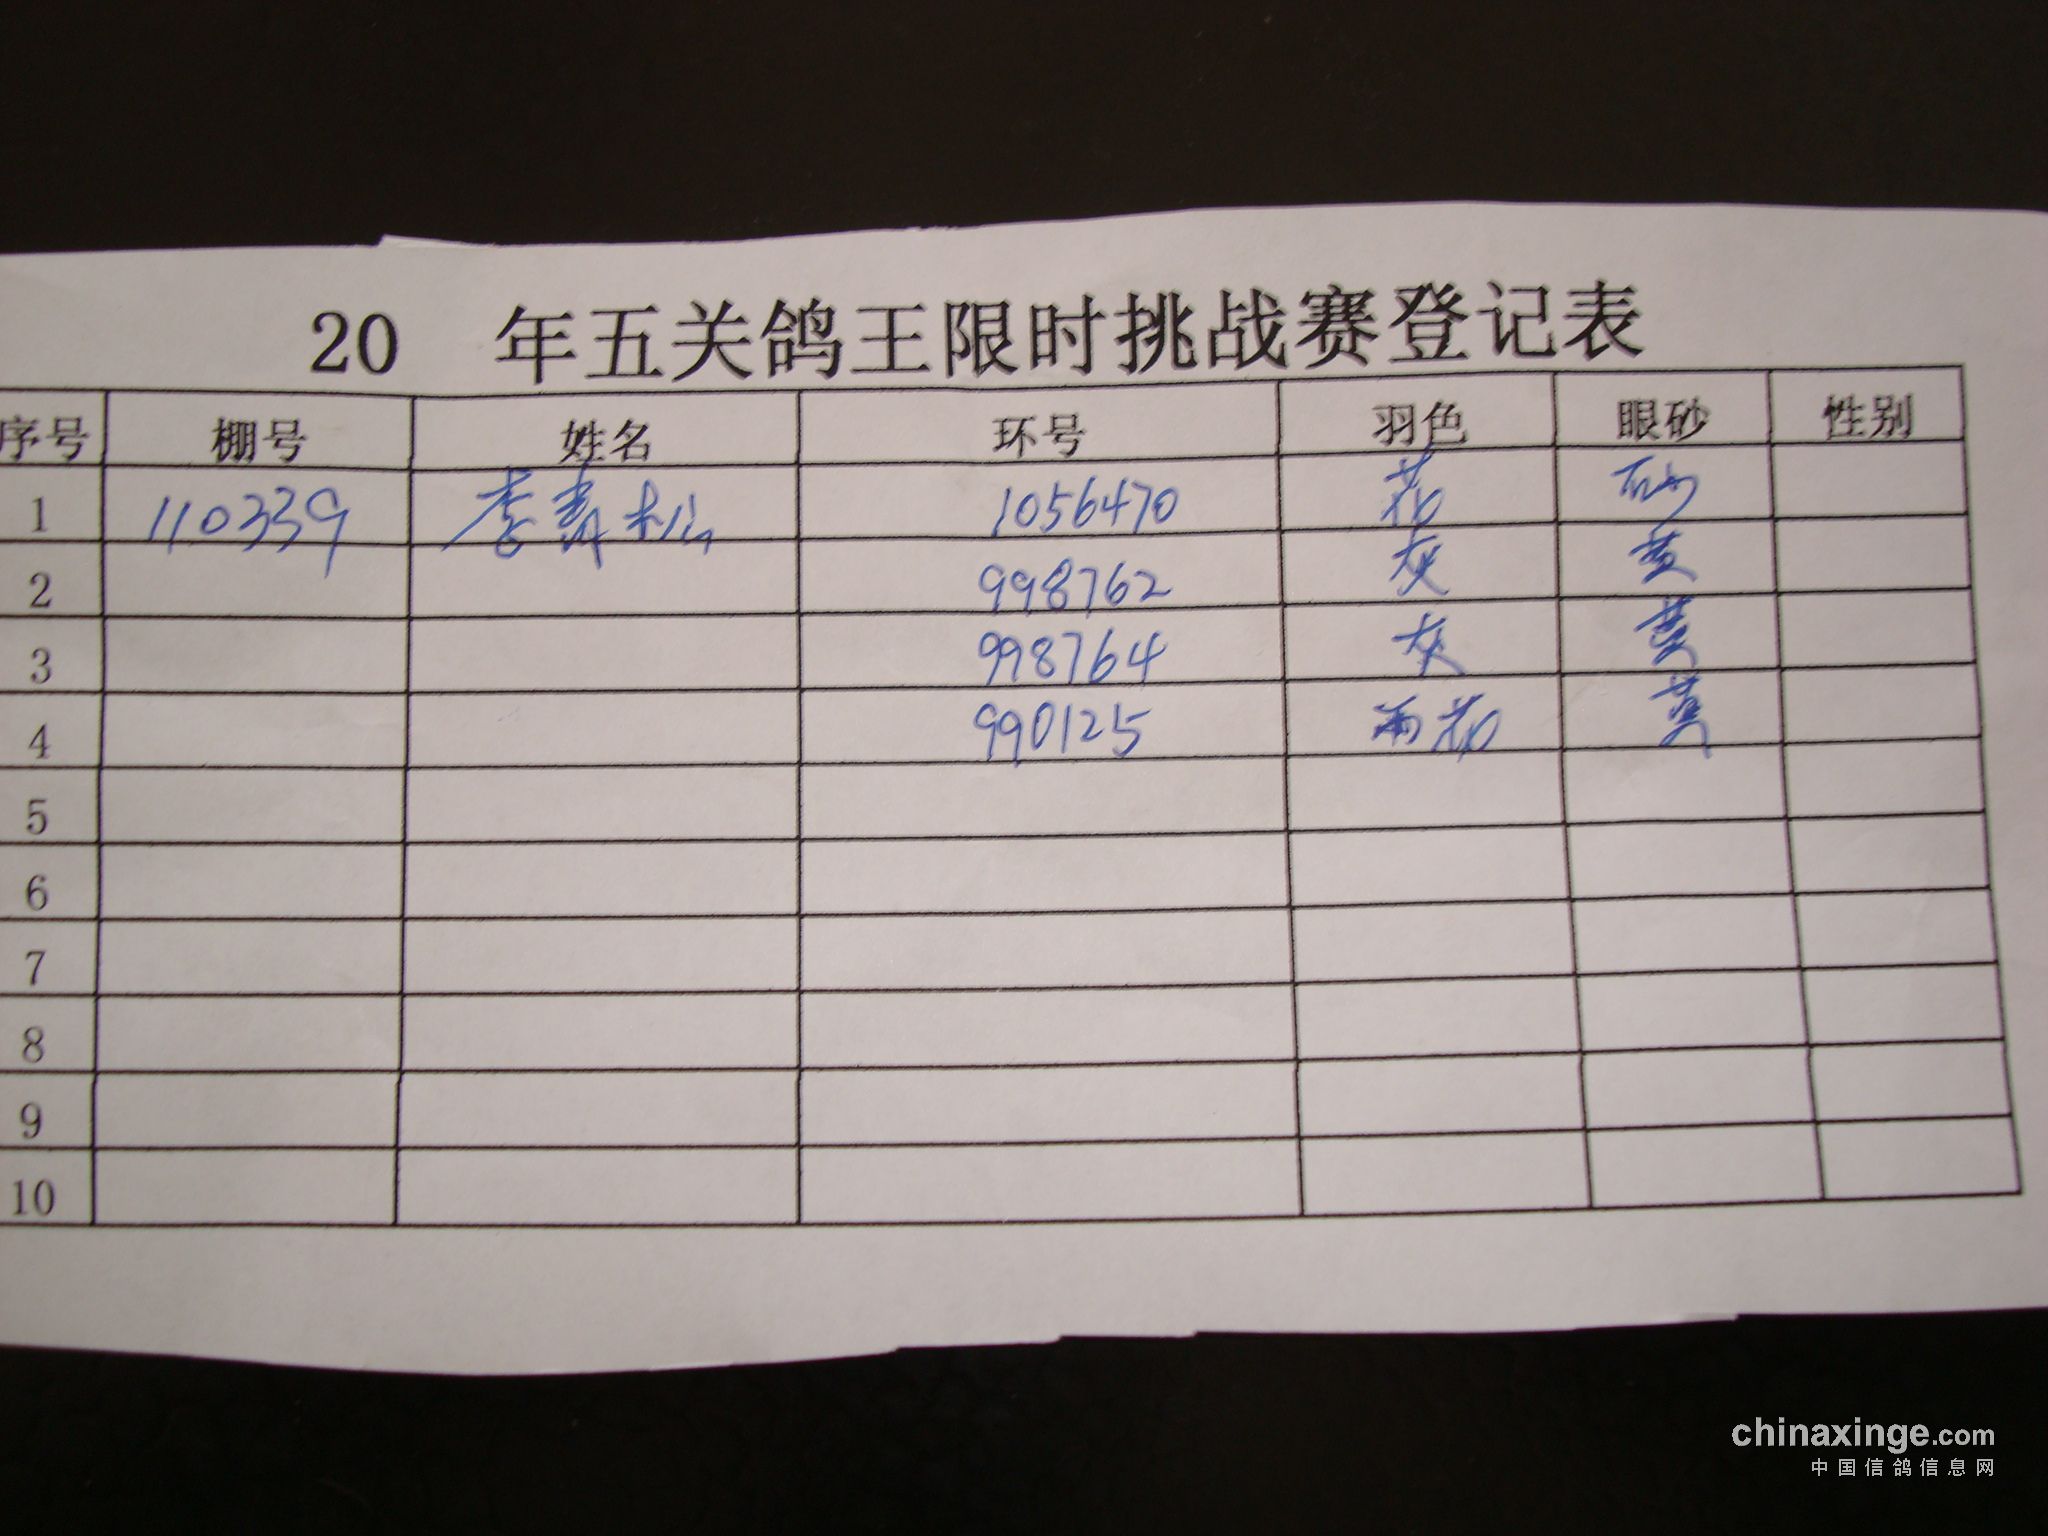 20 年五关鸽王限时挑战赛登记表
序号 棚号 姓名 环号 羽色 眼砂 性别
1 110339 李青松 1056470 花 砂
2 998762 灰 黄
3 998764 灰 黄
4 990125 雨花 黄
5
6
7
8
9
10
chinaxinge.com
中国信鸽信息网